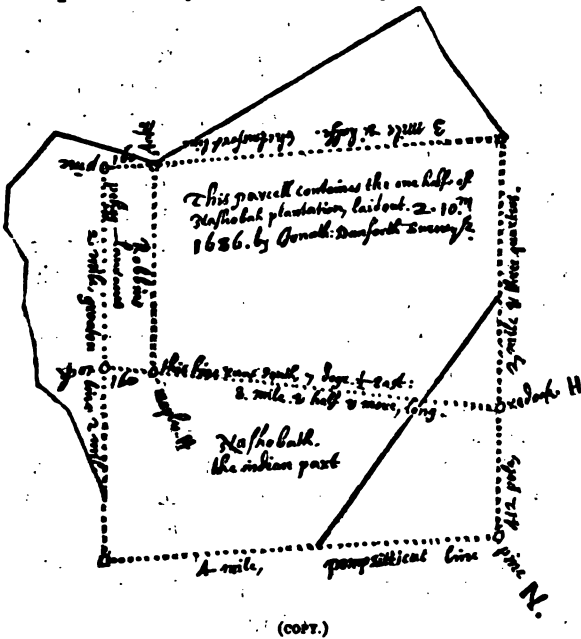 3 mile & halfe. Chelmsford line
pine
160
This parcell containes the one half of
Nashobah plantation, laid out. 2. 10.m
1686. by Jonath: Danforth Survey.r
2 mile, groaton line 2 mile
Robbins
2 mile & three quarters.
160
this line runs South 7 degr. ½ East:
3. mile & half & more, long.
redoak H
Nashobath.
the indian part
412 pole,
4 mile,
pompsitticut line
pine N.
(COPY.)